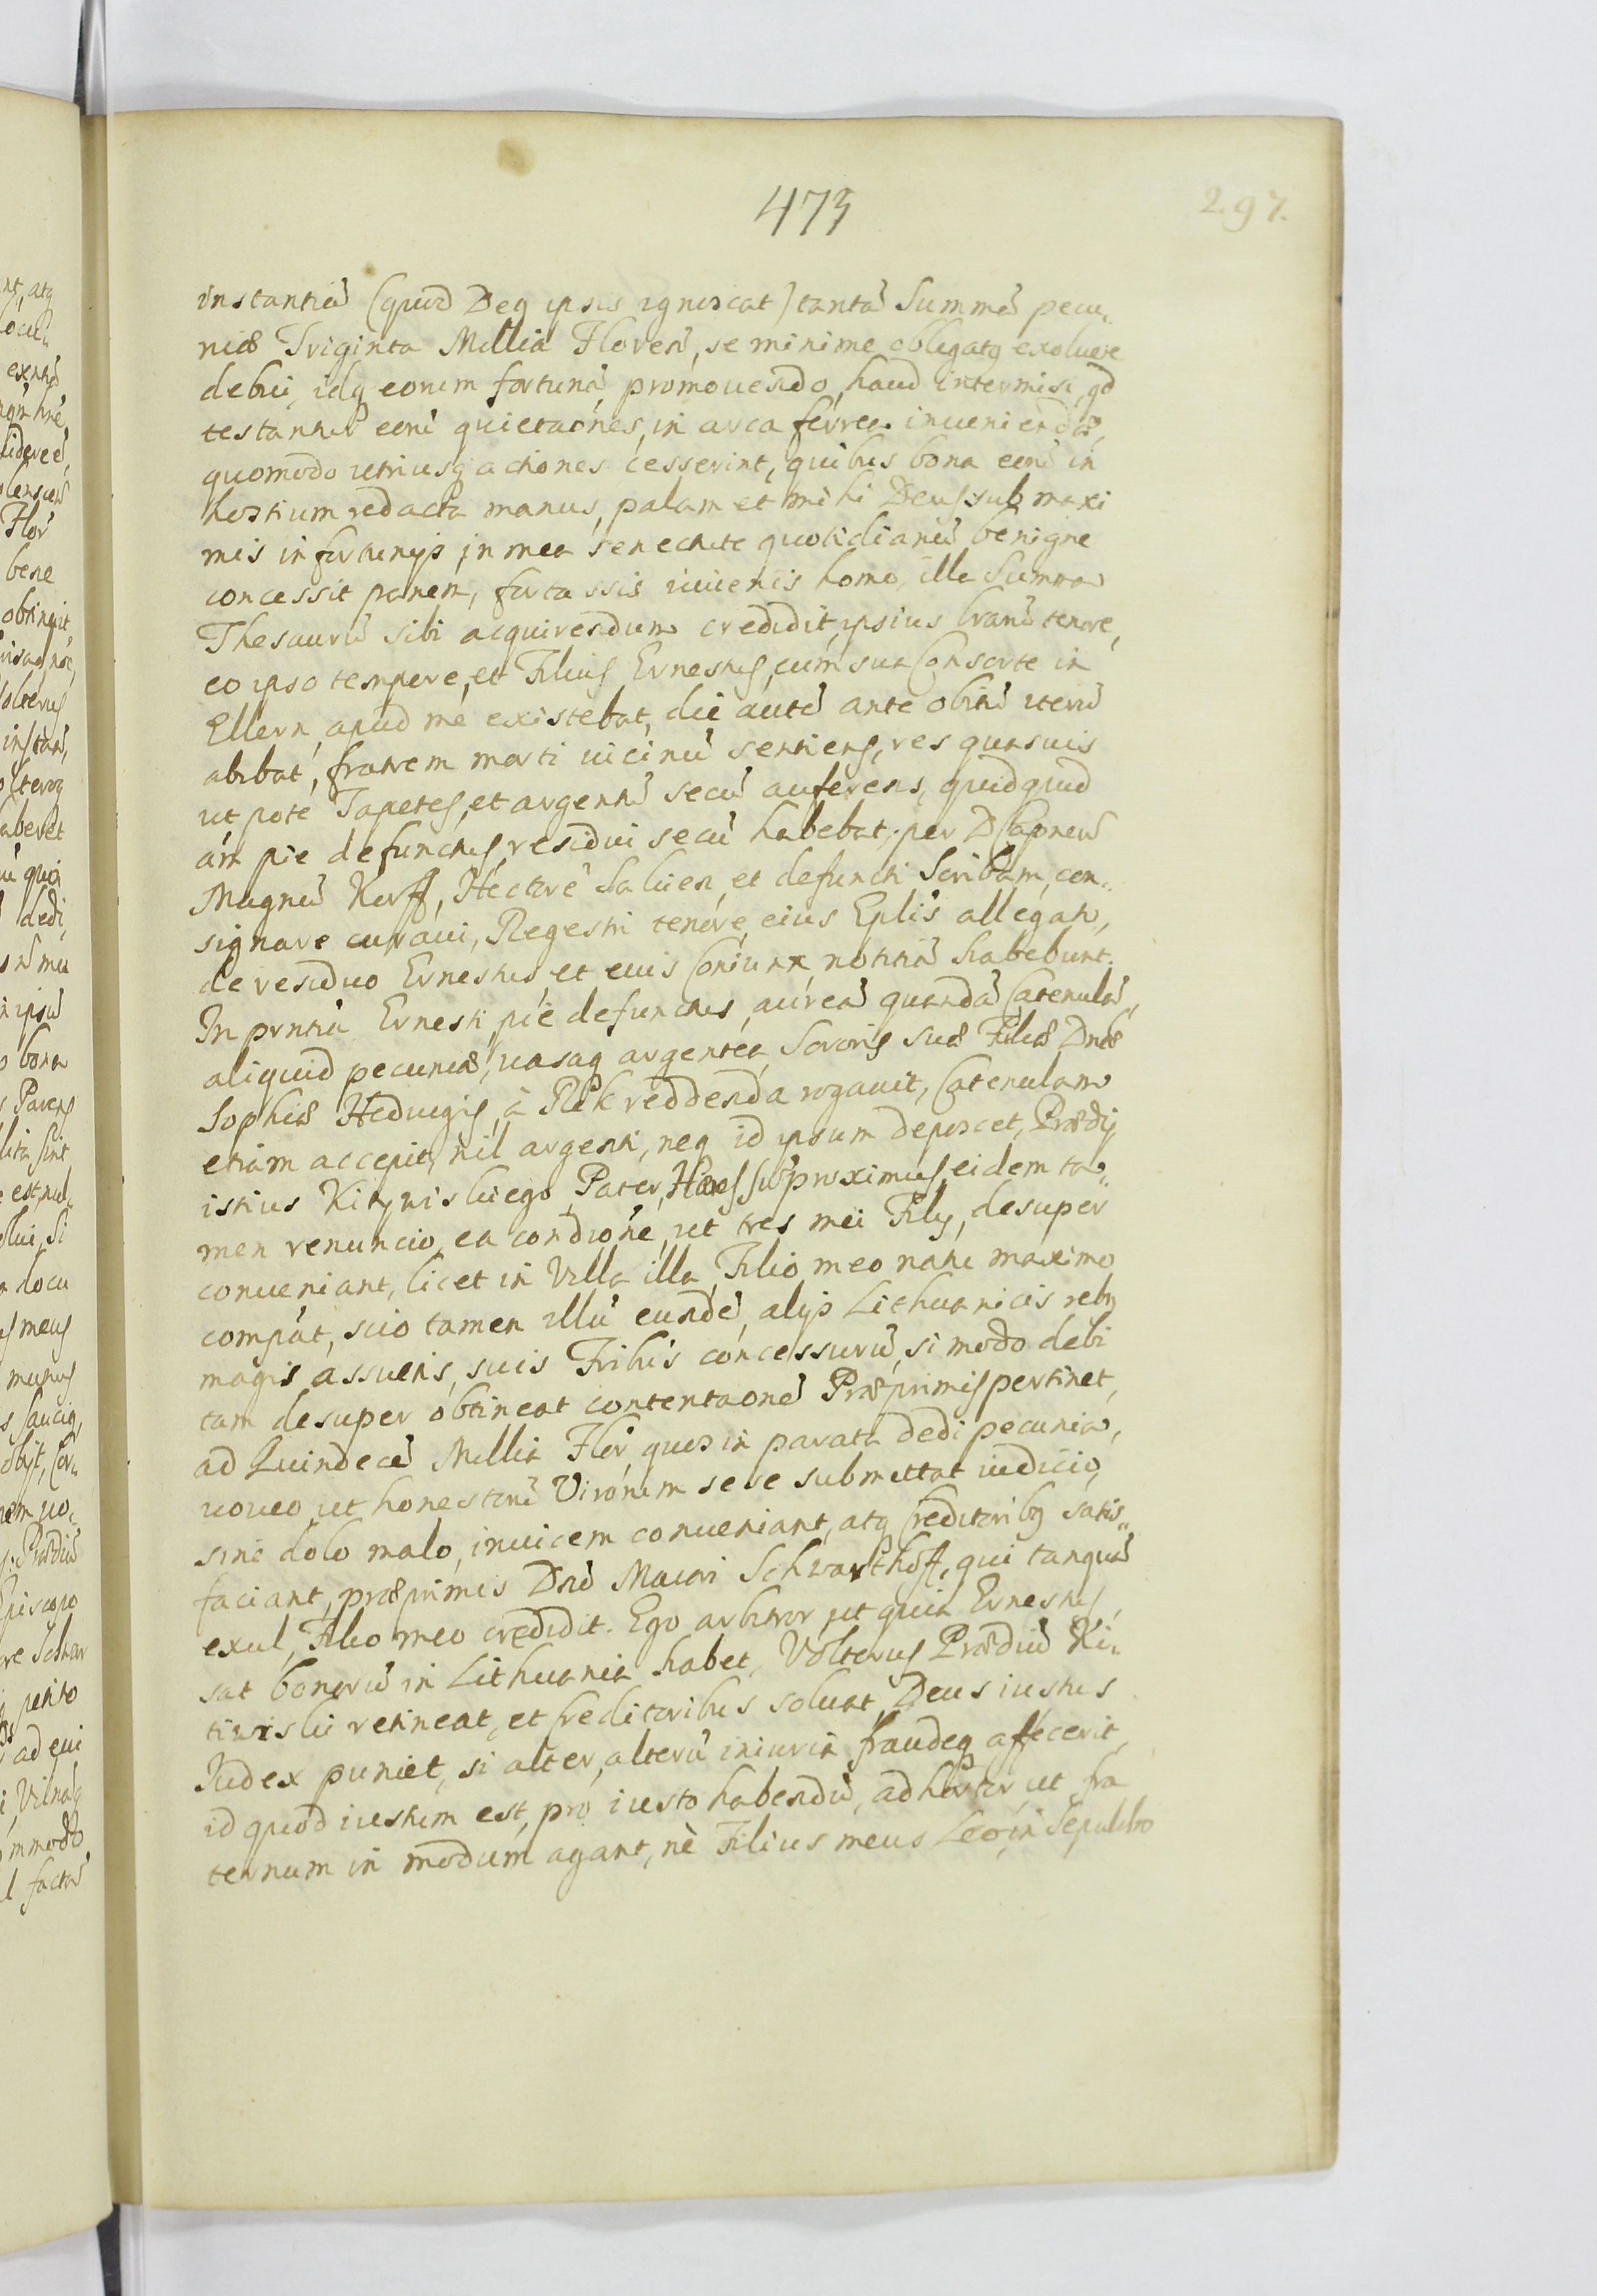 473
297.
instantiã (quod Deq ipsis ignoscat) tantã Summã pecu„
niæ Triginta Millia Floren̄, se minime obligatq exoluere
debui, idq eorum fortunã, promouendo, haud intermisi, qd
testantur eorũ quietaões, in arca ferrea inueniendæ,
quomodo utriusq actiones cesserint, quibus bona eorũ in
hostium redacta manus, palam et mihi Deus sub maxi
mis infortunijs in mea senectute quotidianũ benigne
concessit panem, fortassis iuuenis homo, illa Summa
Thesaurũ sibi acquirendum credidit, ipsius lrarũ tenore,
eo ipso tempore, et Filius Ernestus, cum sua Consorte in
Ellern, apud me existebat, die autẽ ante obitũ iterũ
abibat, fratrem morti uicinũ sentiens, res quasuis
ut pote Tapetes, et argentũ secũ auferens, quidquid
aũt pie defunctus, residui secũ habebat, per D Capneũ
Magnũ Korff, Hectorẽ Salüen, et defuncti Scribam, con„
signare curaui, Regestri tenore, eius Eplis allegati,
de residuo Ernestus, et euis Coniunx notitiã habebunt.
In prntia Ernesti, pie defunctus, aureã quandã Catenulã,
aliquid pecuniæ, uasaq argentea, Sororis suæ Filiæ Dnæ
Sophiæ Heduigis, à Rek reddenda rogauit, Catenulam
etiam accepit, nil argenti, neq id ipsum deposcet, Prædij
istius Kitywisli ego Pater, Hæres sũ proximus, eidem ta„
men renuncio, ea condione, ut tres mei Filij, desuper
conueniant, licet in Villa illa, Filio meo natu maximo
compãt, scio tamen illũ eundẽ, alijs Lithuanicis rebq
magis assuetis, suis Fribus concessurũ, si modo debi
tam desuper obtineat contentaonẽ Præprimis pertinet,
ad Quindecẽ Millia Flor̃, quos in parata dedi pecunia,
uoueo, ut honestorũ Virorum sese submittat iudicio,
sine dolo malo, inuicem conueniant, atq Creditoribq satis„
faciant, præprimis Dnõ Maiori Schwarthoff, qui tanquã
exul, Filio meo credidit. Ego arbitror, ut quia Ernestus,
sat bonorũ in Lithuania habet, Volterus Prædiũ Ki„
tiwisli retineat, et Creditoribus soluat, Deus iustus
Iudex puniet, si alter, alterũ iniuria fraudeq affecerit,
id quod iustum est, pro iusto habendũ, adhortor, ut fra
ternum in modum agant, nè Filius meus Leo, in Sepulchro